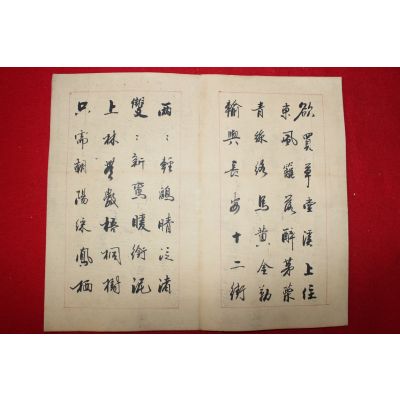 欲買草堂溪上住
東風籬落醉茅柴
青絲絡馬黃金勒
輸與長安十二街
兩〻輕鷗晴泛渚
雙〻新鶯暖銜泥
上林無數梧桐樹
只朝陽采鳳栖